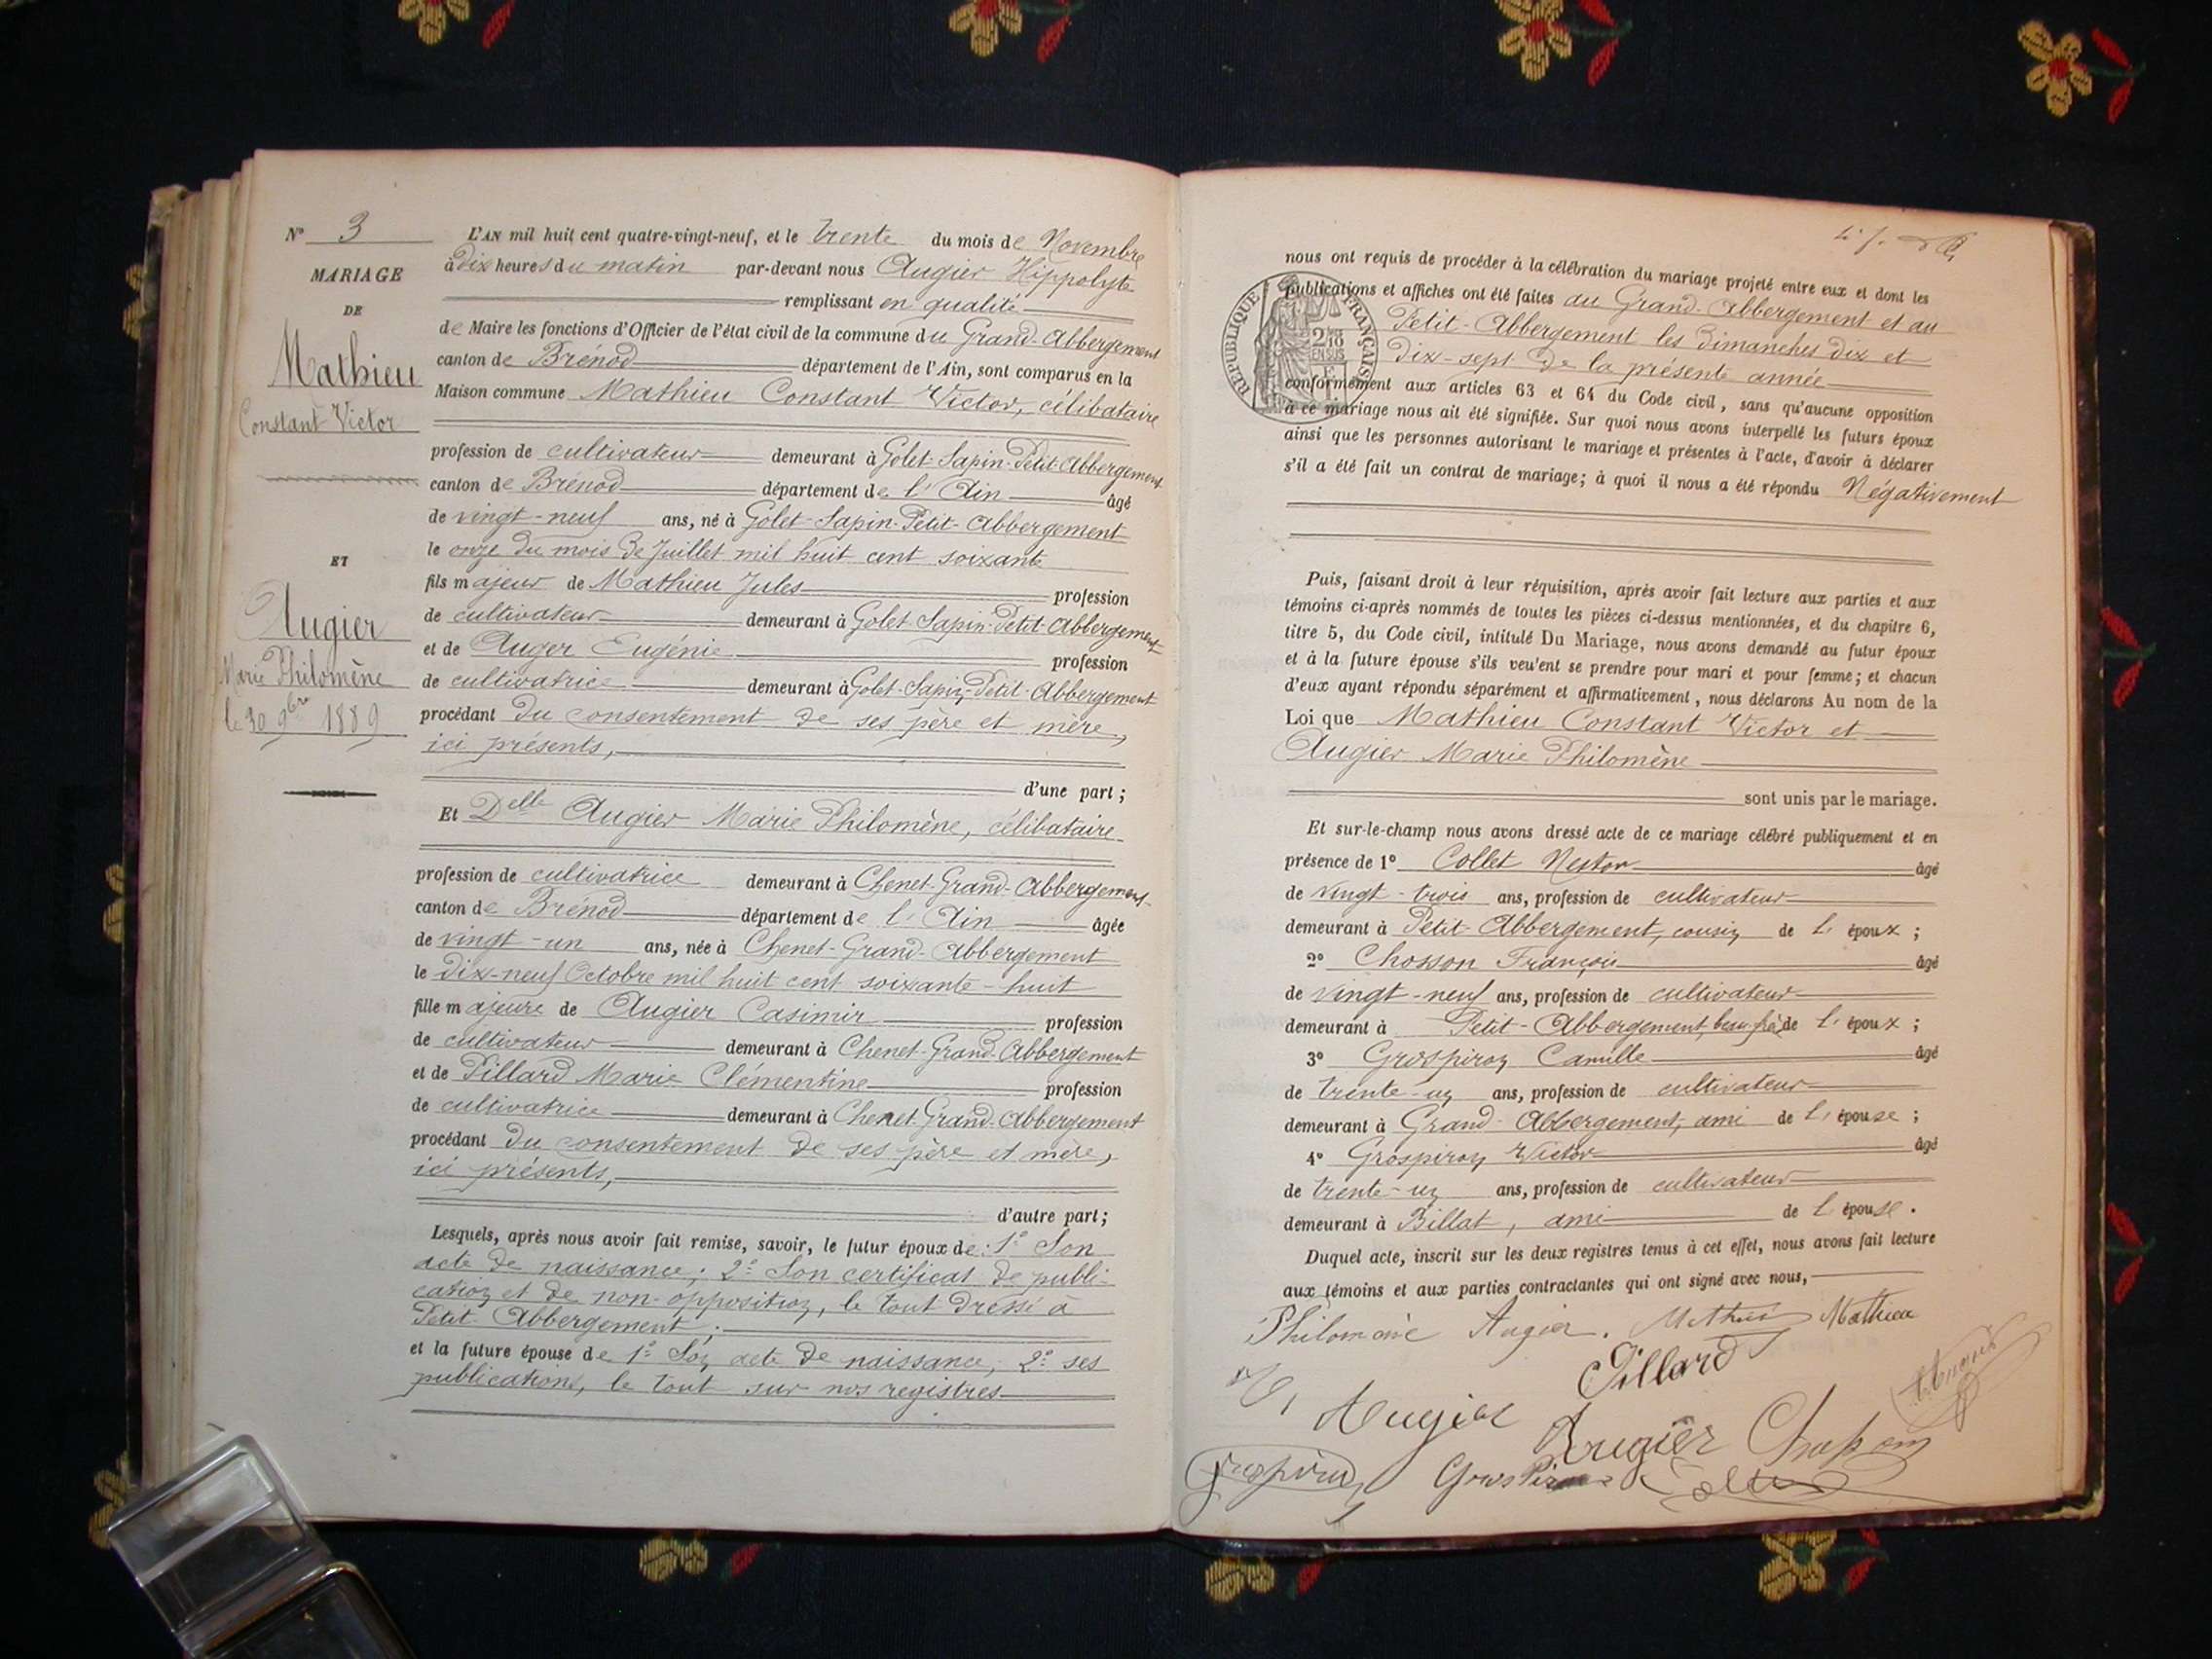 Nº 3
MARIAGE
DE
Mathieu
Constant Victor
ET
Augier
Marie Philomène
le 30 9bre 1889
L'AN mil huit cent quatre-vingt-neuf, et le trente du mois de Novembre
à dix heures du matin par-devant nous Augier Hippolyte
remplissant en qualité
de Maire les fonctions d'Officier de l'état civil de la commune du Grand-Abbergement
canton de Brénod département de l'Ain, sont comparus en la
Maison commune Mathieu Constant Victor, célibataire
profession de cultivateur demeurant à Golet-Sapin-Petit-Abbergement
canton de Brénod département de l'Ain âgé
de vingt-neuf ans, né à Golet-Sapin-Petit-Abbergement
le onze du mois de Juillet mil huit cent soixante
fils majeur de Mathieu Jules profession
de cultivateur demeurant à Golet-Sapin-Petit-Abbergement
et de Auger Eugénie profession
de cultivatrice demeurant à Golet-Sapin-Petit-Abbergement
procédant du consentement de ses père et mère,
ici présents,
d'une part ;
Et Delle Augier Marie Philomène, célibataire
profession de cultivatrice demeurant à Chenet-Grand-Abbergement
canton de Brénod département de l'Ain âgée
de vingt-un ans, née à Chenet-Grand-Abbergement
le dix-neuf Octobre mil huit cent soixante-huit
fille majeure de Augier Casimir profession
de cultivateur demeurant à Chenet-Grand-Abbergement
et de Pillard Marie Clémentine profession
de cultivatrice demeurant à Chenet-Grand-Abbergement
procédant du consentement de ses père et mère,
ici présents,
d'autre part ;
Lesquels, après nous avoir fait remise, savoir, le futur époux de : 1º Son
acte de naissance ; 2º Son certificat de publi-
cation et de non-opposition, le tout dressé à
Petit-Abbergement ;
et la future épouse de 1º Son acte de naissance, 2º ses
publications, le tout sur nos registres
nous ont requis de procéder à la célébration du mariage projeté entre eux et dont les
publications et affiches ont été faites au Grand-Abbergement et au
Petit-Abbergement les dimanches dix et
dix-sept de la présente année
conformément aux articles 63 et 64 du Code civil, sans qu'aucune opposition
à ce mariage nous ait été signifiée. Sur quoi nous avons interpellé les futurs époux
ainsi que les personnes autorisant le mariage et présentes à l'acte, d'avoir à déclarer
s'il a été fait un contrat de mariage ; à quoi il nous a été répondu Négativement
RÉPUBLIQUE FRANÇAISE
2/10
EN SUS
Puis, faisant droit à leur réquisition, après avoir fait lecture aux parties et aux
témoins ci-après nommés de toutes les pièces ci-dessus mentionnées, et du chapitre 6,
titre 5, du Code civil, intitulé Du Mariage, nous avons demandé au futur époux
et à la future épouse s'ils veu'ent se prendre pour mari et pour femme ; et chacun
d'eux ayant répondu séparément et affirmativement, nous déclarons Au nom de la
Loi que Mathieu Constant Victor et
Augier Marie Philomène
sont unis par le mariage.
Et sur-le-champ nous avons dressé acte de ce mariage célébré publiquement et en
présence de 1º Collet Nestor âgé
de vingt-trois ans, profession de cultivateur
demeurant à Petit-Abbergement, cousin de l'époux ;
2º Chosson François âgé
de vingt-neuf ans, profession de cultivateur
demeurant à Petit-Abbergement, beau frè de l'époux ;
3º Grospiron Camille âgé
de trente-un ans, profession de cultivateur
demeurant à Grand-Abbergement, ami de l'épouse ;
4º Grospiron Victor âgé
de trente-un ans, profession de cultivateur
demeurant à Billat, ami de l'épouse.
Duquel acte, inscrit sur les deux registres tenus à cet effet, nous avons fait lecture
aux témoins et aux parties contractantes qui ont signé avec nous,
Philomène Augier. Mathieu Mathieu
Pillard
Augier Augier